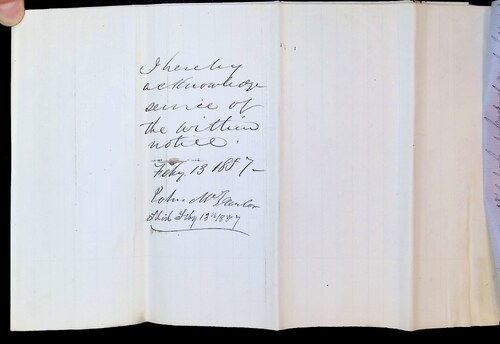 I hereby
acknowledge
service of
the within
notice.
Feby. 13 1887—
John Mc
Filed Feby 13th 1887